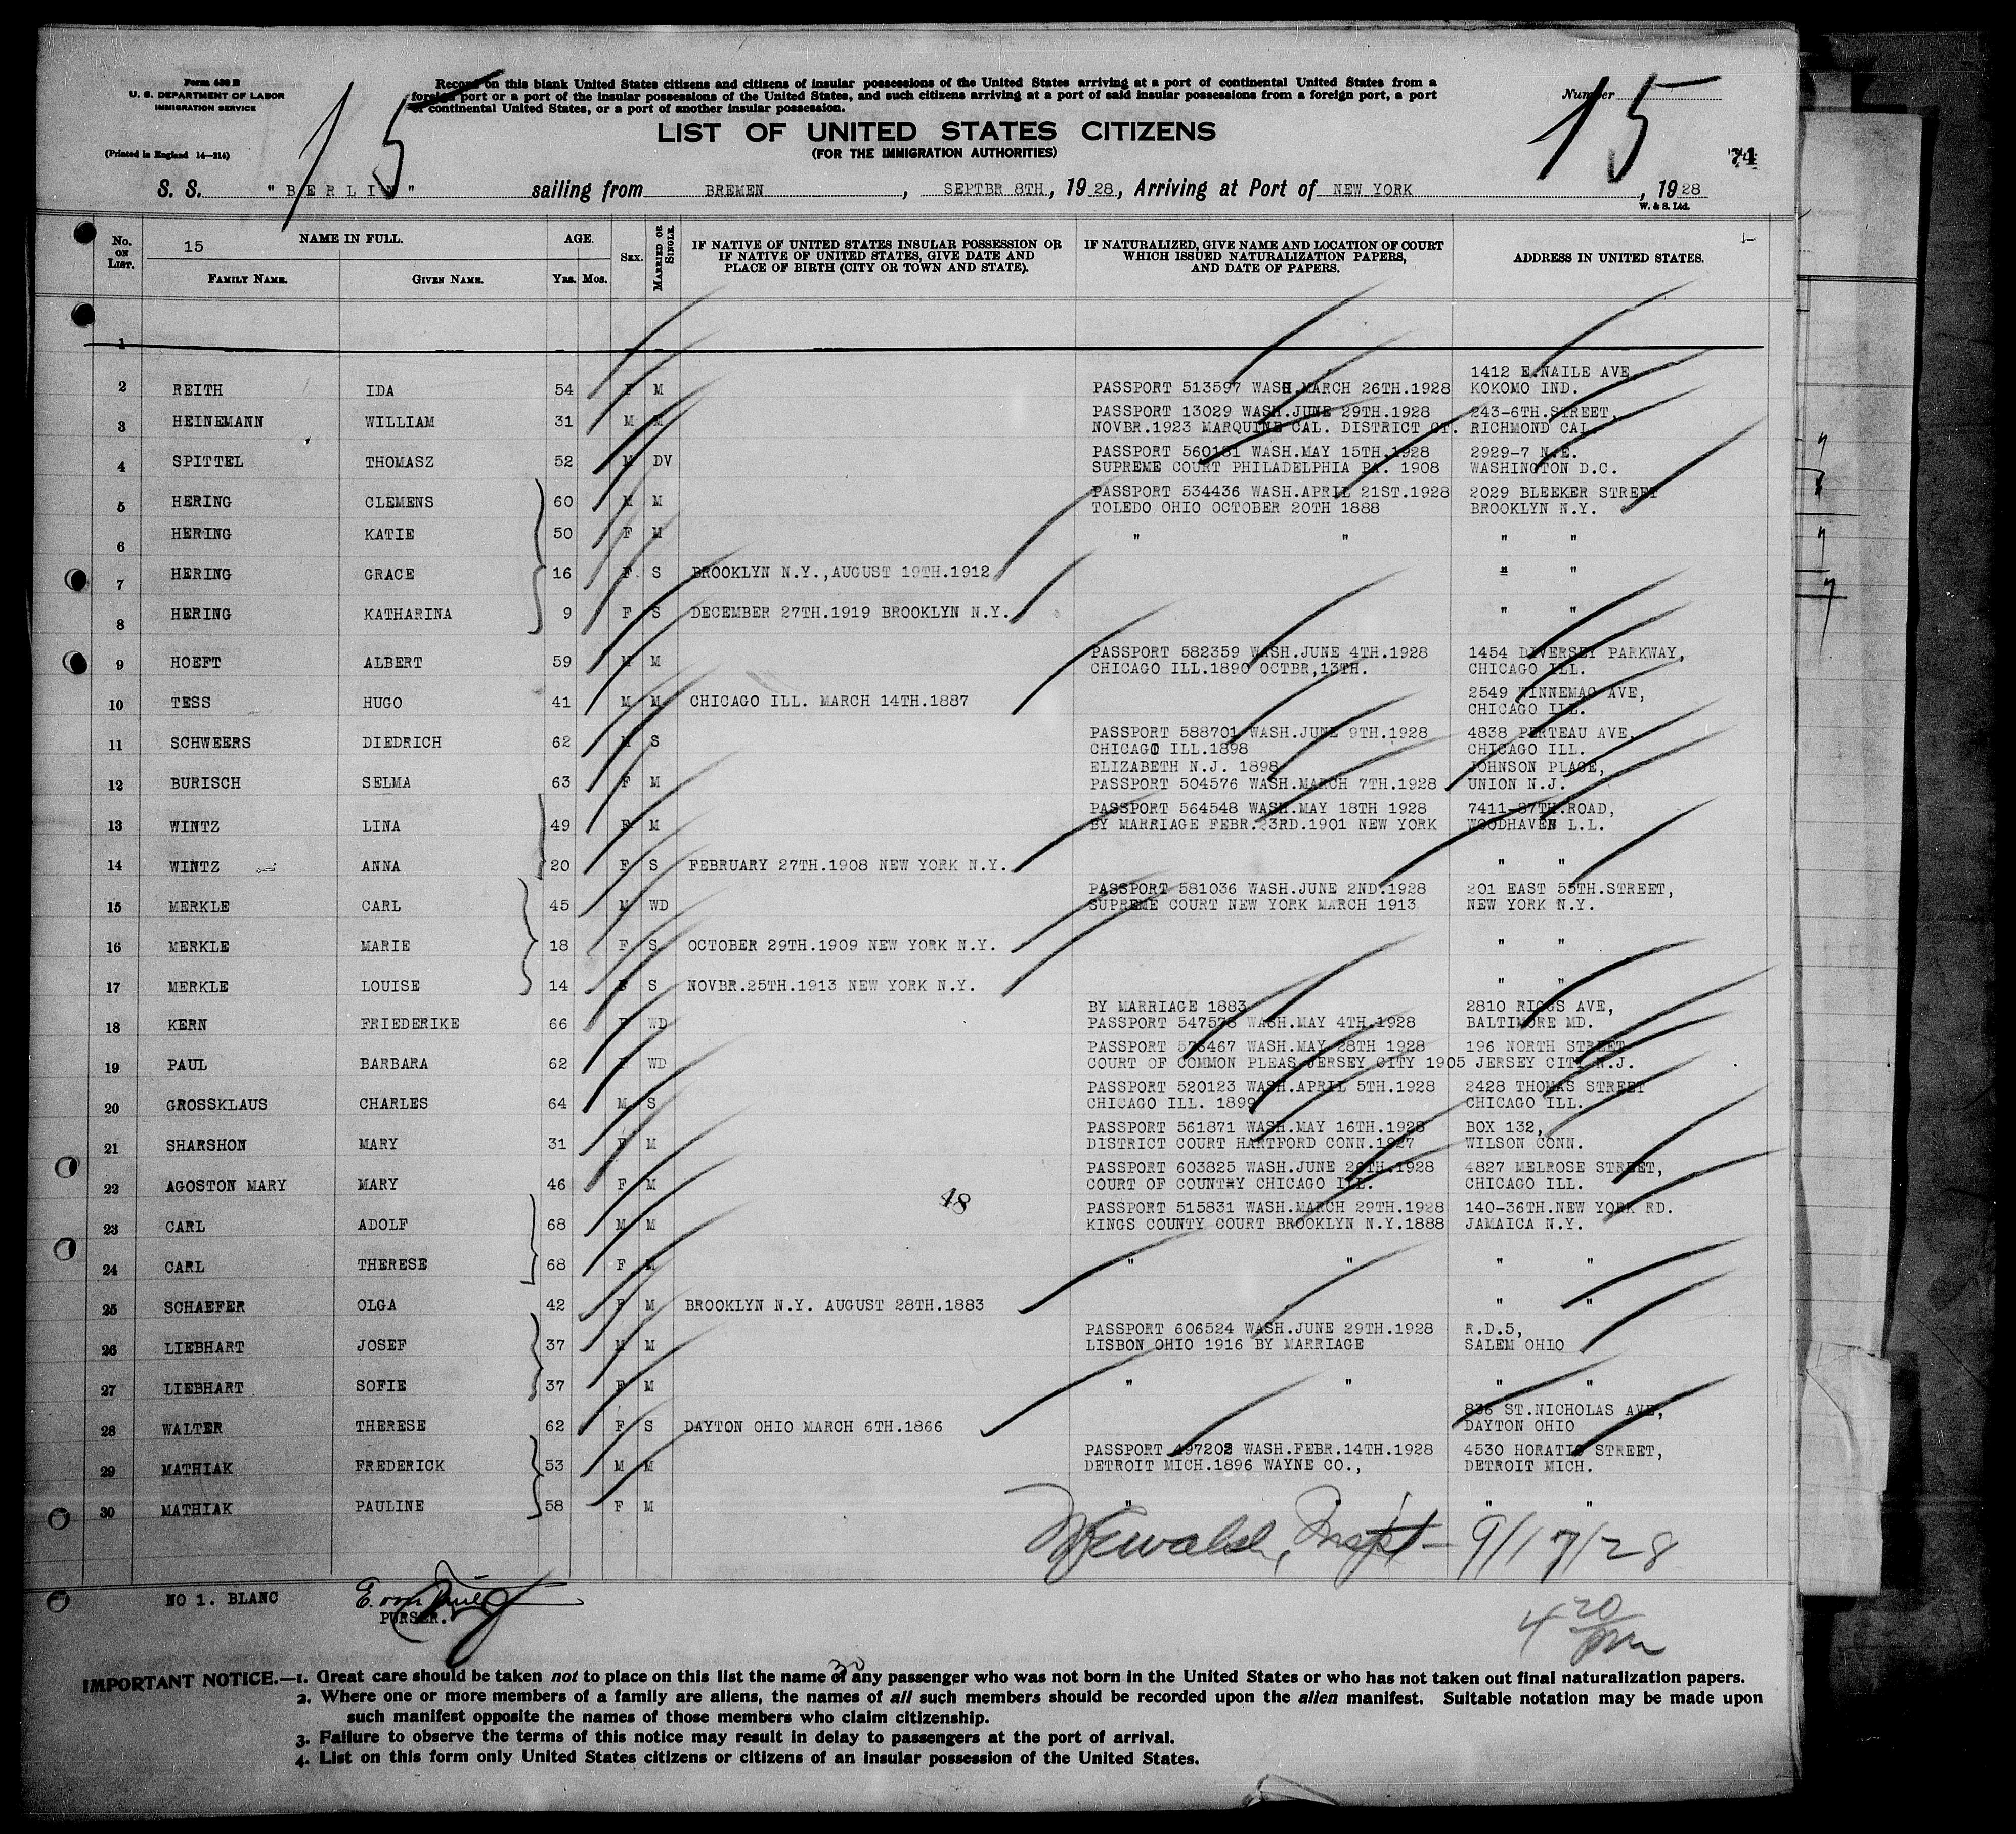 Form 630 B
U. S. DEPARTMENT OF LABOR
IMMIGRATION SERVICE
(Printed in England 14—214)
15
Record on this blank United States citizens and citizens of insular possessions of the United States arriving at a port of continental United States from a
foreign port or a port of the insular possessions of the United States, and such citizens arriving at a port of said insular possessions from a foreign port, a port
of continental United States, or a port of another insular possession.
LIST OF UNITED STATES CITIZENS
(FOR THE IMMIGRATION AUTHORITIES)
Number
15
74
S. S. "BERLIN" sailing from BREMEN, SEPTBR 8TH, 1928, Arriving at Port of NEW YORK, 1928
W. & S. Ltd.
No. ON LIST. 15 NAME IN FULL. FAMILY NAME. GIVEN NAME. AGE. YRS. MOS. SEX. MARRIED OR SINGLE. IF NATIVE OF UNITED STATES INSULAR POSSESSION OR IF NATIVE OF UNITED STATES, GIVE DATE AND PLACE OF BIRTH (CITY OR TOWN AND STATE). IF NATURALIZED, GIVE NAME AND LOCATION OF COURT WHICH ISSUED NATURALIZATION PAPERS, AND DATE OF PAPERS. ADDRESS IN UNITED STATES.
1 ---- --- - - - ---
1412 E.NAILE AVE,
2 REITH IDA 54 F M PASSPORT 513597 WASH.MARCH 26TH.1928 KOKOMO IND.
PASSPORT 13029 WASH.JUNE 29TH.1928 243-6TH.STREET,
3 HEINEMANN WILLIAM 31 M M NOVBR.1923 MARQUINE CAL. DISTRICT CT. RICHMOND CAL.
PASSPORT 560181 WASH.MAY 15TH.1928 2929-7 N.E.
4 SPITTEL THOMASZ 52 M DV SUPREME COURT PHILADELPHIA PA. 1908 WASHINGTON D.C.
PASSPORT 534436 WASH.APRIL 21ST.1928 2029 BLEEKER STREET
5 HERING CLEMENS 60 M M TOLEDO OHIO OCTOBER 20TH 1888 BROOKLYN N.Y.
6 HERING KATIE 50 F M " " " "
7 HERING GRACE 16 F S BROOKLYN N.Y.,AUGUST 19TH.1912 " "
8 HERING KATHARINA 9 F S DECEMBER 27TH.1919 BROOKLYN N.Y. " "
PASSPORT 582359 WASH.JUNE 4TH.1928 1454 DIVERSEY PARKWAY,
9 HOEFT ALBERT 59 M M CHICAGO ILL.1890 OCTBR,13TH. CHICAGO ILL.
2549 WINNEMAC AVE,
10 TESS HUGO 41 M M CHICAGO ILL. MARCH 14TH.1887 CHICAGO ILL.
PASSPORT 588701 WASH.JUNE 9TH.1928 4838 PERTEAU AVE,
11 SCHWEERS DIEDRICH 62 M S CHICAGO ILL.1898 CHICAGO ILL.
ELIZABETH N.J. 1898 JOHNSON PLACE,
12 BURISCH SELMA 63 F M PASSPORT 504576 WASH.MARCH 7TH.1928 UNION N.J.
PASSPORT 564548 WASH.MAY 18TH 1928 7411-87TH.ROAD,
13 WINTZ LINA 49 F M BY MARRIAGE FEBR.23RD.1901 NEW YORK WOODHAVEN L.L.
14 WINTZ ANNA 20 F S FEBRUARY 27TH.1908 NEW YORK N.Y. " "
PASSPORT 581036 WASH.JUNE 2ND.1928 201 EAST 55TH.STREET,
15 MERKLE CARL 45 M WD SUPREME COURT NEW YORK MARCH 1913 NEW YORK N.Y.
16 MERKLE MARIE 18 F S OCTOBER 29TH.1909 NEW YORK N.Y. " "
17 MERKLE LOUISE 14 F S NOVBR.25TH.1913 NEW YORK N.Y. " "
BY MARRIAGE 1883 2810 RIGGS AVE,
18 KERN FRIEDERIKE 66 F WD PASSPORT 547578 WASH.MAY 4TH.1928 BALTIMORE MD.
PASSPORT 576467 WASH.MAY 28TH 1928 196 NORTH STREET
19 PAUL BARBARA 62 F WD COURT OF COMMON PLEAS JERSEY CITY 1905 JERSEY CITY N.J.
PASSPORT 520123 WASH.APRIL 5TH.1928 2428 THOMAS STREET
20 GROSSKLAUS CHARLES 64 M S CHICAGO ILL. 1899 CHICAGO ILL.
PASSPORT 561871 WASH.MAY 16TH.1928 BOX 132,
21 SHARSHON MARY 31 F M DISTRICT COURT HARTFORD CONN.1927 WILSON CONN.
PASSPORT 603825 WASH.JUNE 26TH.1928 4827 MELROSE STREET,
22 AGOSTON MARY MARY 46 F M COURT OF COUNTRY CHICAGO ILL. CHICAGO ILL.
48
PASSPORT 515831 WASH.MARCH 29TH.1928 140-36TH.NEW YORK RD.
23 CARL ADOLF 68 M M KINGS COUNTY COURT BROOKLYN N.Y.1888 JAMAICA N.Y.
24 CARL THERESE 68 F M " " " "
25 SCHAEFER OLGA 42 F M BROOKLYN N.Y. AUGUST 28TH.1883 " "
PASSPORT 606524 WASH.JUNE 29TH.1928 R.D.5,
26 LIEBHART JOSEF 37 M M LISBON OHIO 1916 BY MARRIAGE SALEM OHIO
27 LIEBHART SOFIE 37 F M " " " "
836 ST.NICHOLAS AVE,
28 WALTER THERESE 62 F S DAYTON OHIO MARCH 6TH.1866 DAYTON OHIO
PASSPORT 497202 WASH.FEBR.14TH.1928 4530 HORATIO STREET,
29 MATHIAK FREDERICK 53 M M DETROIT MICH.1896 WAYNE CO., DETROIT MICH.
30 MATHIAK PAULINE 58 F M " " " "
Inspt — 9/17/28
NO 1. BLANC
PURSER.
4 20 pm
30
IMPORTANT NOTICE.—1. Great care should be taken not to place on this list the name of any passenger who was not born in the United States or who has not taken out final naturalization papers.
2. Where one or more members of a family are aliens, the names of all such members should be recorded upon the alien manifest. Suitable notation may be made upon
such manifest opposite the names of those members who claim citizenship.
3. Failure to observe the terms of this notice may result in delay to passengers at the port of arrival.
4. List on this form only United States citizens or citizens of an insular possession of the United States.